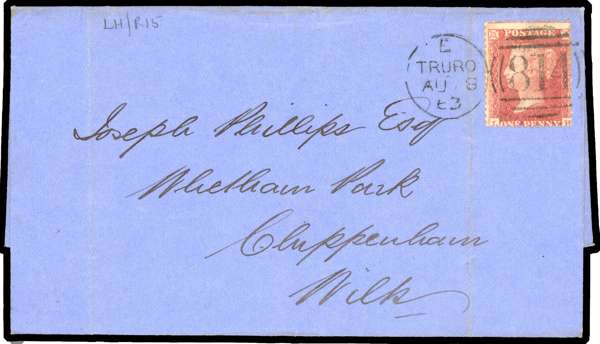 LH/R15
E
TRURO
AU 8
63
POSTAGE
811
ONE PENNY
Joseph Phillips Esq
Whetham Park
Chippenham
Wilts